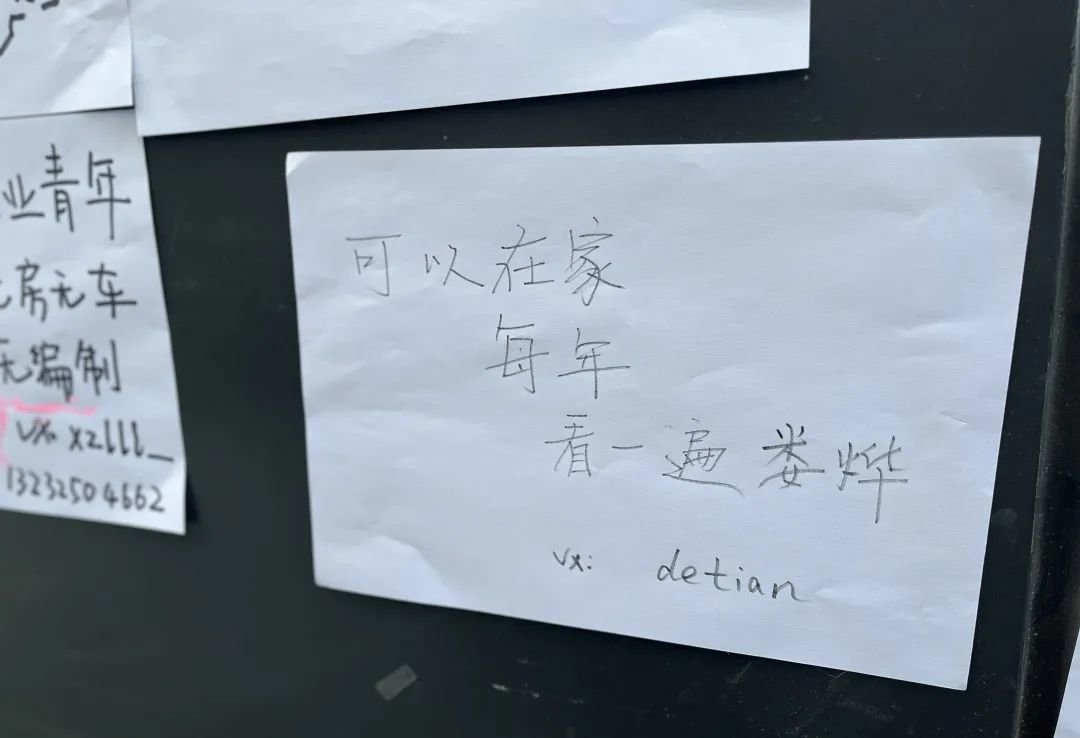 业青年
房无车
无编制
vx. xzlll_
13232504662
可以在家
每年
看一遍娄烨
vx: detian